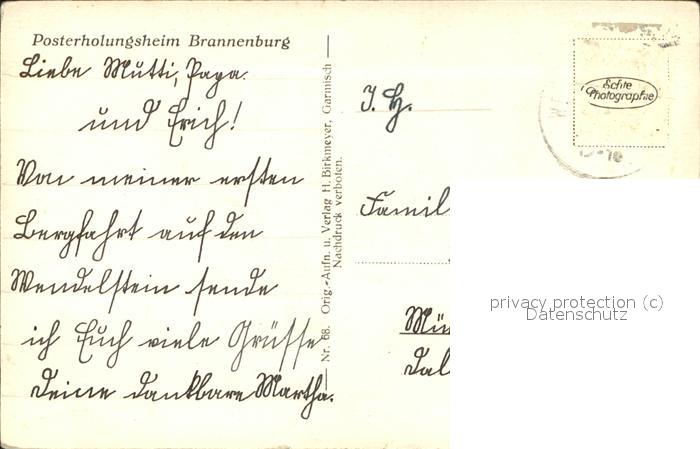 Posterholungsheim Brannenburg
Liebe Mutti, Papa
und Erich!
Von meiner ersten
Bergfahrt auf den
Wendelstein sende
ich Euch viele Grüsse
Deine dankbare Martha.
Nr. 68. Orig.-Aufn. u. Verlag H. Birkmeyer, Garmisch
Nachdruck verboten.
Echte
Photographie
Famil
Mü
privacy protection (c)
Datenschutz